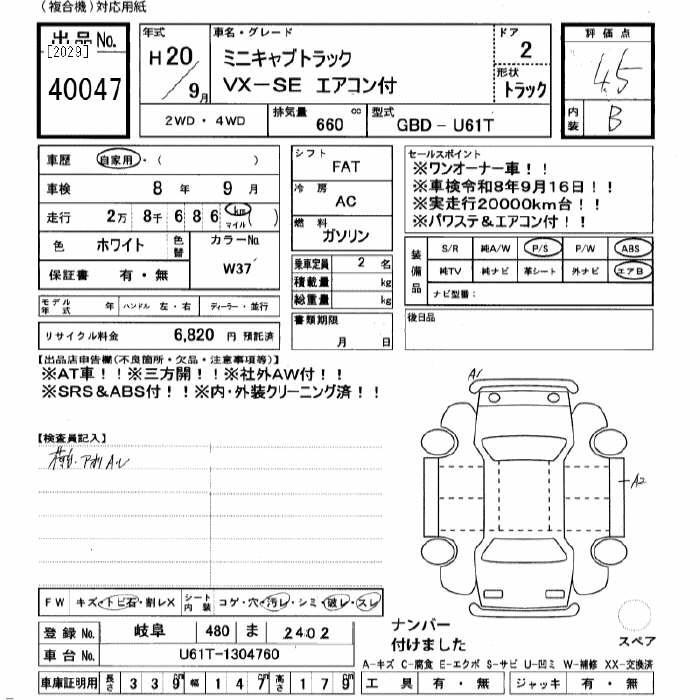 (複合機)対応用紙
出品No.
[2029]
40047
年式
H20
9月
車名・グレード
ミニキャブトラック
VX-SE エアコン付
ドア
2
形状
トラック
評価点
4.5
内装
B
2WD・4WD
排気量
660 cc
型式
GBD-U61T
車歴
自家用・( )
車検
8年 9月
走行
2万8千686 km マイル ( )
色
ホワイト
色替
カラーNo.
W37
保証書
有・無
シフト
FAT
冷房
AC
燃料
ガソリン
乗車定員 2名
積載量 kg
総重量 kg
書類期限
月 日
セールスポイント
※ワンオーナー車!!
※車検令和8年9月16日!!
※実走行20000km台!!
※パワステ&エアコン付!!
装備品
S/R 純A/W P/S P/W ABS
純TV 純ナビ 革シート 外ナビ エアB
ナビ型番:
後日品
モデル年式 年 ハンドル 左・右 ディーラー・並行
リサイクル料金 6,820 円 預託済
【出品店申告欄(不良箇所・欠品・注意事項等)】
※AT車!!※三方開!!※社外AW付!!
※SRS&ABS付!!※内・外装クリーニング済!!
【検査員記入】
A1
A2
FW キズ・トビ石・割レX
シート内装 コゲ・穴・汚レ・シミ・破レ・スレ
登録No. 岐阜 480 ま 2402
車台No. U61T-1304760
車庫証明用 長さ 339 幅 147 高さ 179
ナンバー
付けました
スペア
A-キズ C-腐食 E-エクボ S-サビ U-凹ミ W-補修 XX-交換済
工具 有・無 ジャッキ 有・無